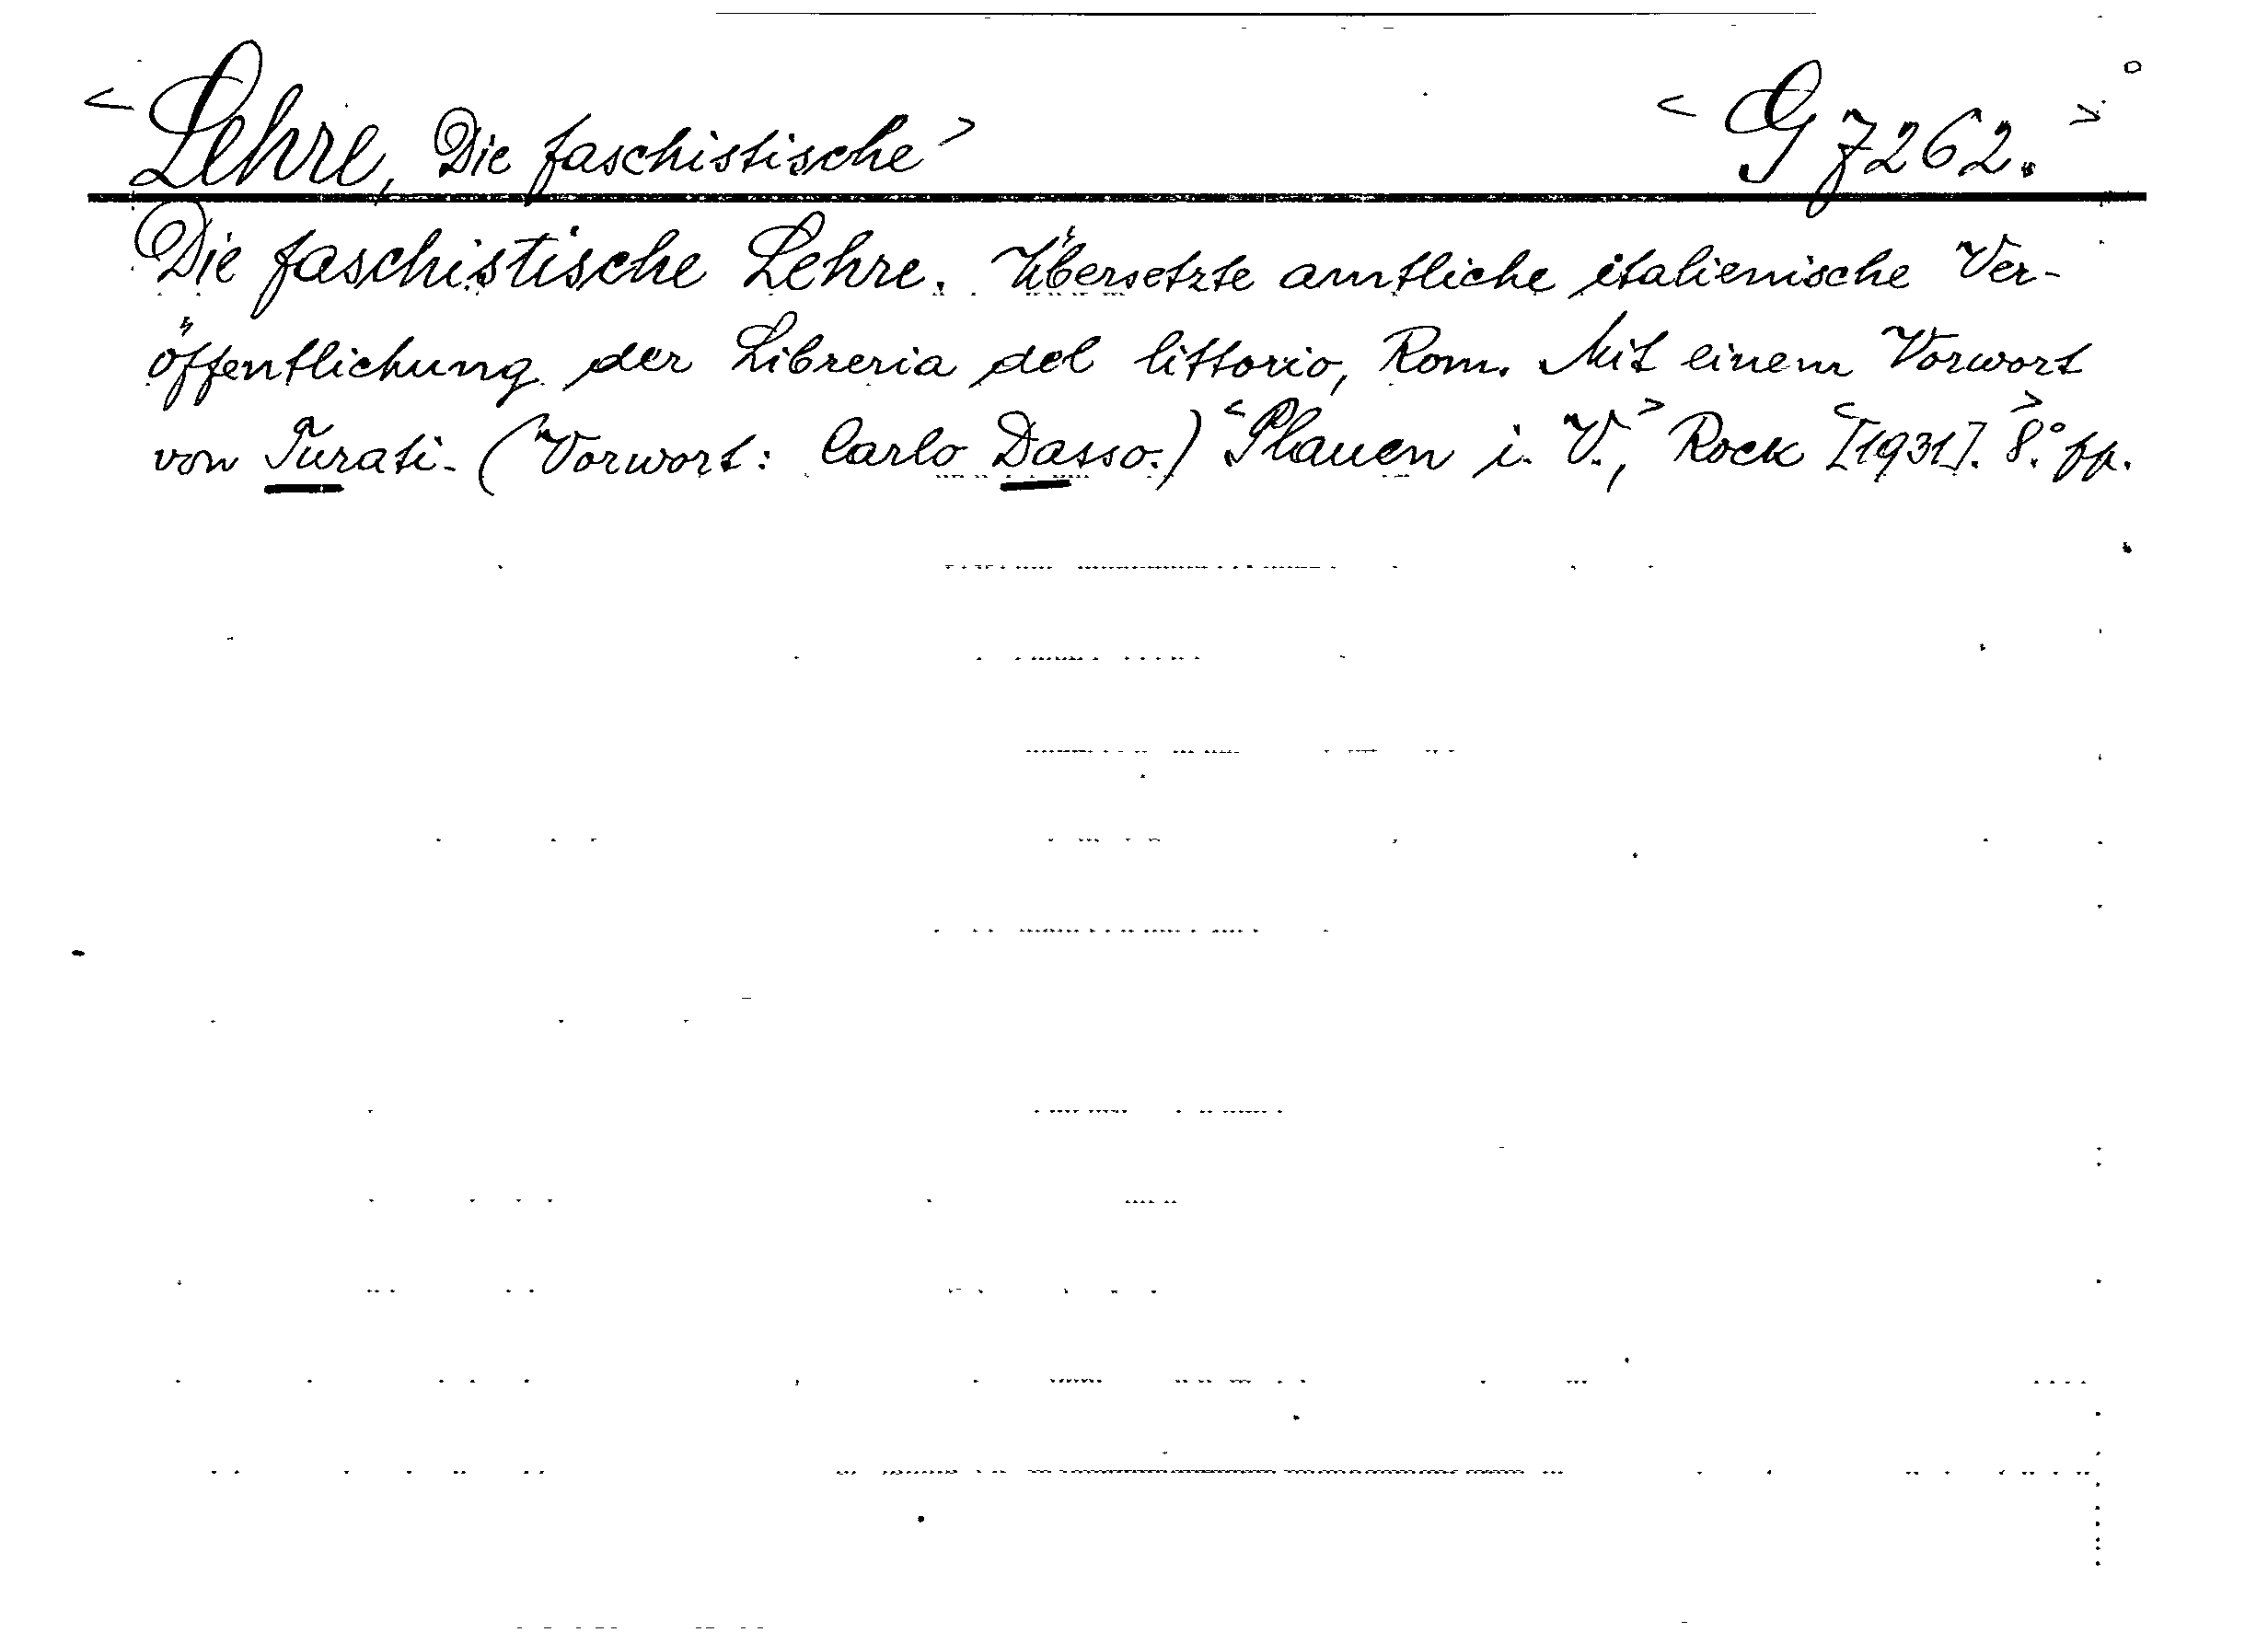 <Lehre, Die faschistische> <G 7262.>
Die faschistische Lehre. Übersetzte amtliche italienische Ver-
öffentlichung der Libreria del littorio, Rom. Mit einem Vorwort
von Turati. (Vorwort: Carlo Dasso.) <Plauen i. V.,> Rock <[1931].> 8.°